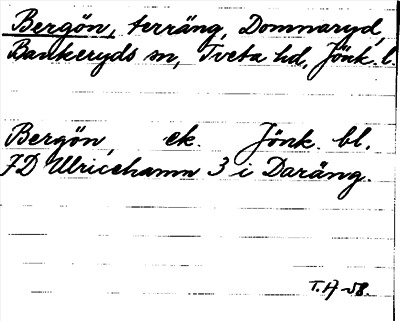 Bergön, terräng, Domnaryd,
Bankeryds sn, Tveta hd, Jönk. l.
Bergön, ek. Jönk. bl.
FD Ulricehamn 3 i Daräng.
T. A -58.